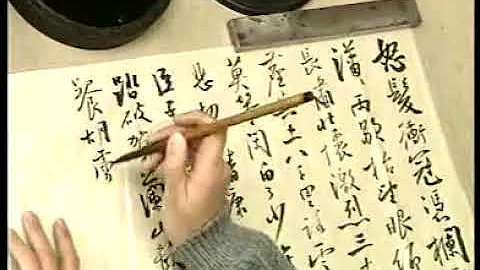 怒髮衝冠憑欄
瀟瀟雨歇抬望眼仰
長嘯壯懷激烈三
塵與土八千里路雲
莫等閒白了少
悲切 靖康
臣子
踏破賀蘭山缺
餐胡虜